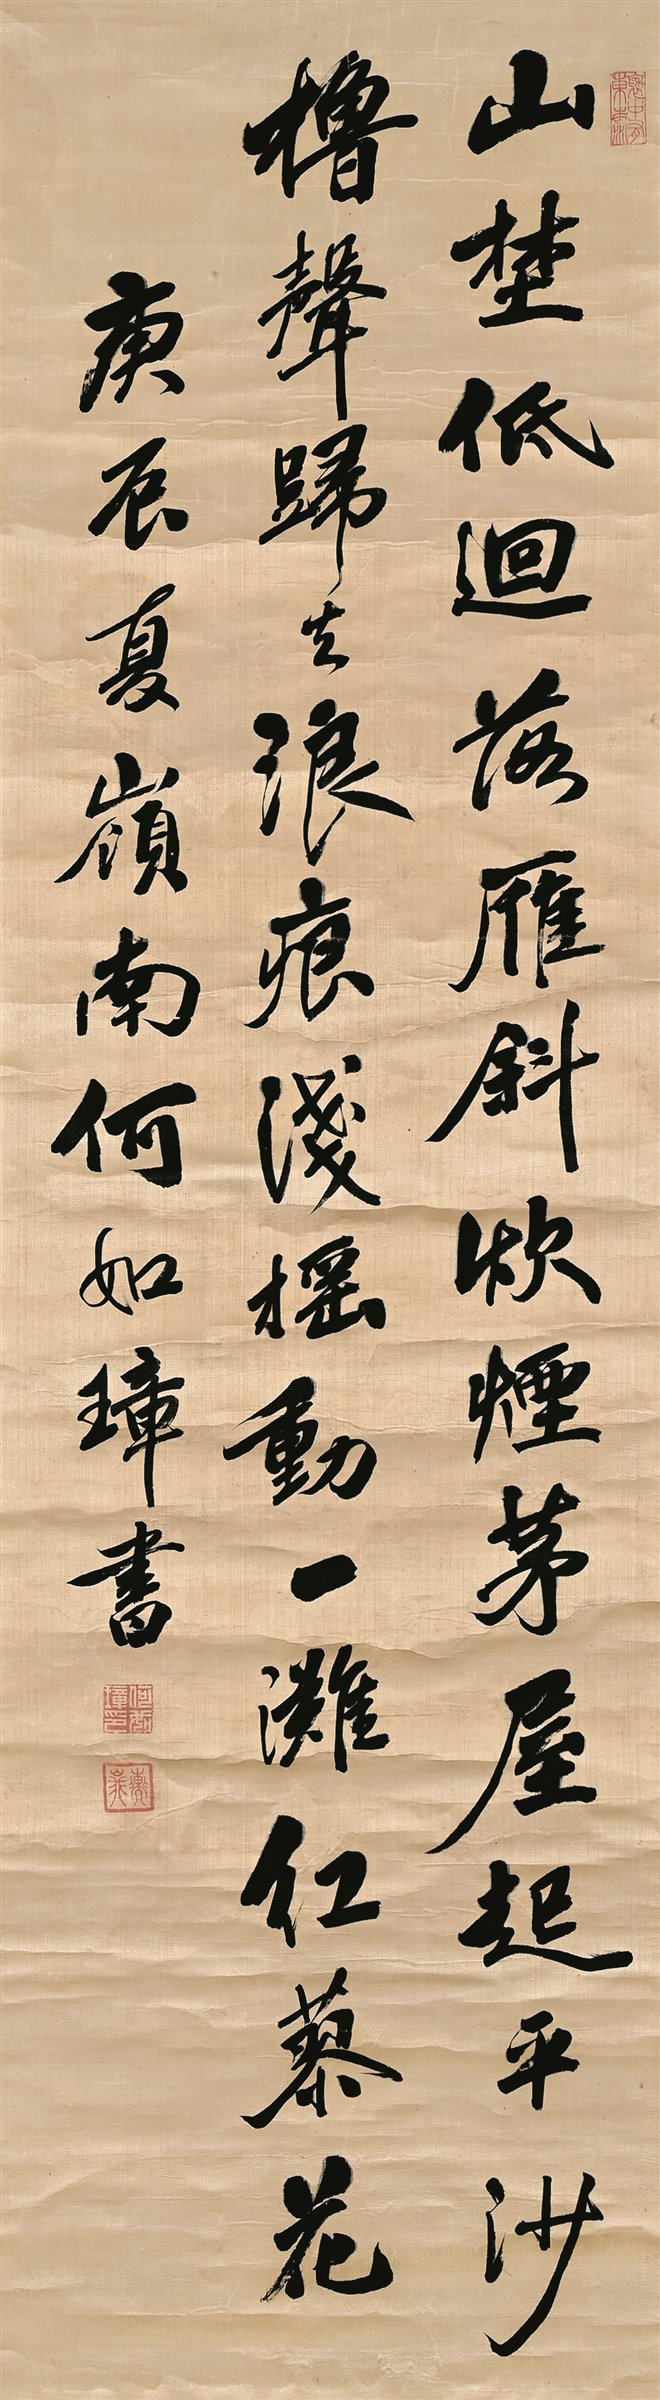 山埜低迴落雁斜炊煙茅屋起平沙
櫓聲歸去浪痕淺摇動一灘紅蓼花
庚辰夏嶺南何如璋書
何如璋印